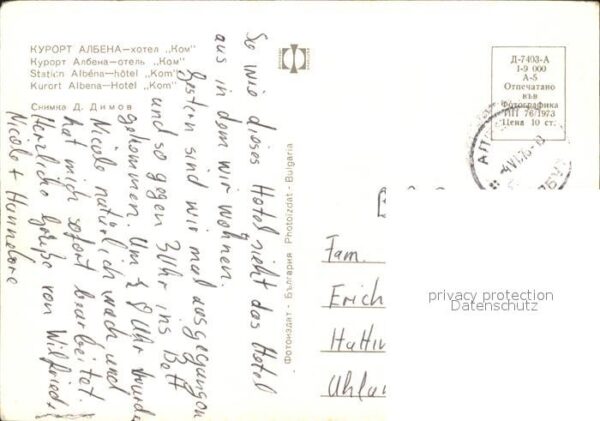 КУРОРТ АЛБЕНА—хотел „Ком"
Курорт Албена—отель „Ком"
Station Albéna—hôtel „Kom"
Kurort Albena—Hotel „Kom"
Снимка Д. Димов
So wie dieses Hotel sieht das Hotel
aus in dem wir wohnen.
Gestern sind wir mal ausgegangen
und so gegen 3 Uhr ins Bett
gekommen. Um 8 Uhr wurde
Nicole natürlich wach und
hat mich sofort bearbeitet.
Herzliche Grüße von Wilfried
Nicole + Hannelore
Фотоиздат - България Photoizdat - Bulgaria
Д-7403-А
I-9 000
А-5
Отпечатано
във
Фотографика
ИП 76/1973
Цена 10 ст.
Fam.
Erich
Hattin
Uhlan
privacy protection
Datenschutz